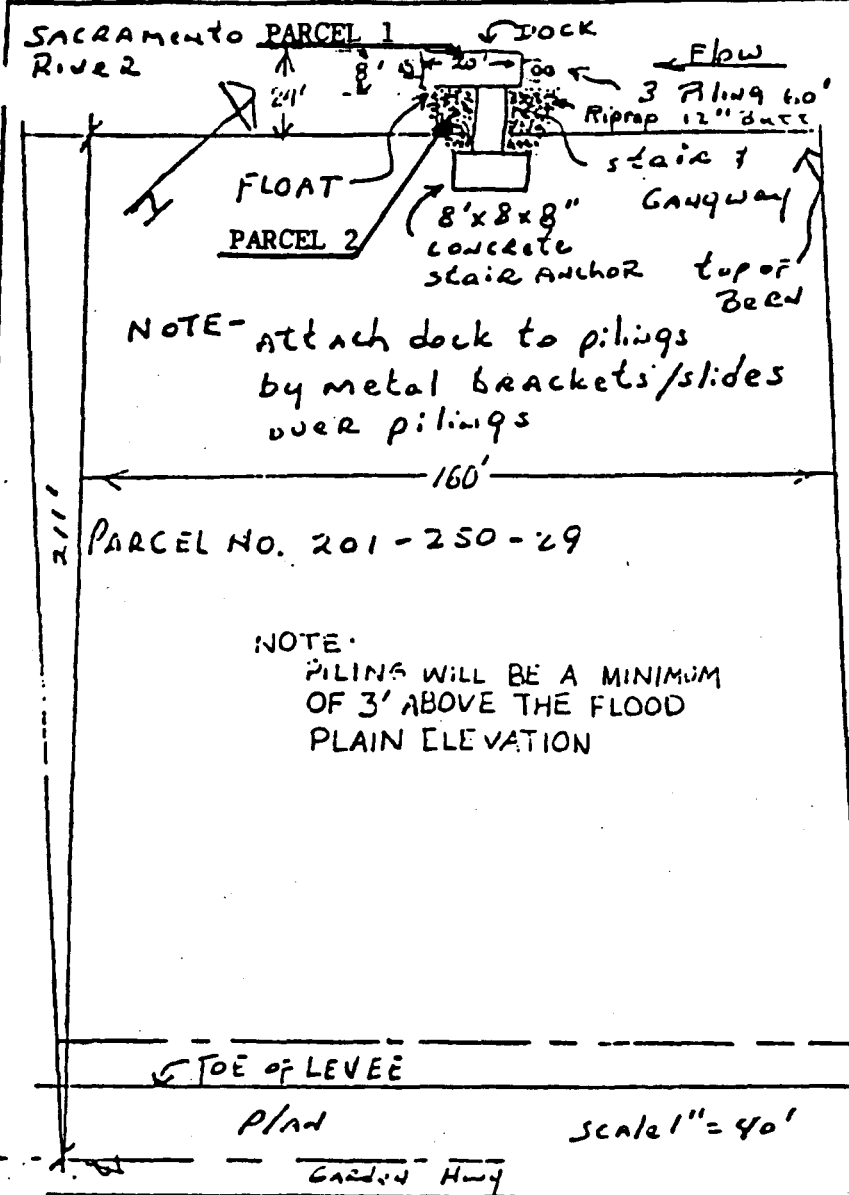 SACRAMENTO PARCEL 1 DOCK
RIVER
Flow
24' 8' 20'
3 Piling 60'
Riprap 12" butt
FLOAT
stair &
GANGWAY
PARCEL 2
8'x8x8"
CONCRETE
stair ANCHOR
top of
NOTE- Attach dock to pilings
by metal BRACKETS/slides
over pilings
160'
211'
PARCEL NO. 201-250-29
NOTE.
PILING WILL BE A MINIMUM
OF 3' ABOVE THE FLOOD
PLAIN ELEVATION
TOE OF LEVEE
Plan scale 1" = 40'
Garden Hwy